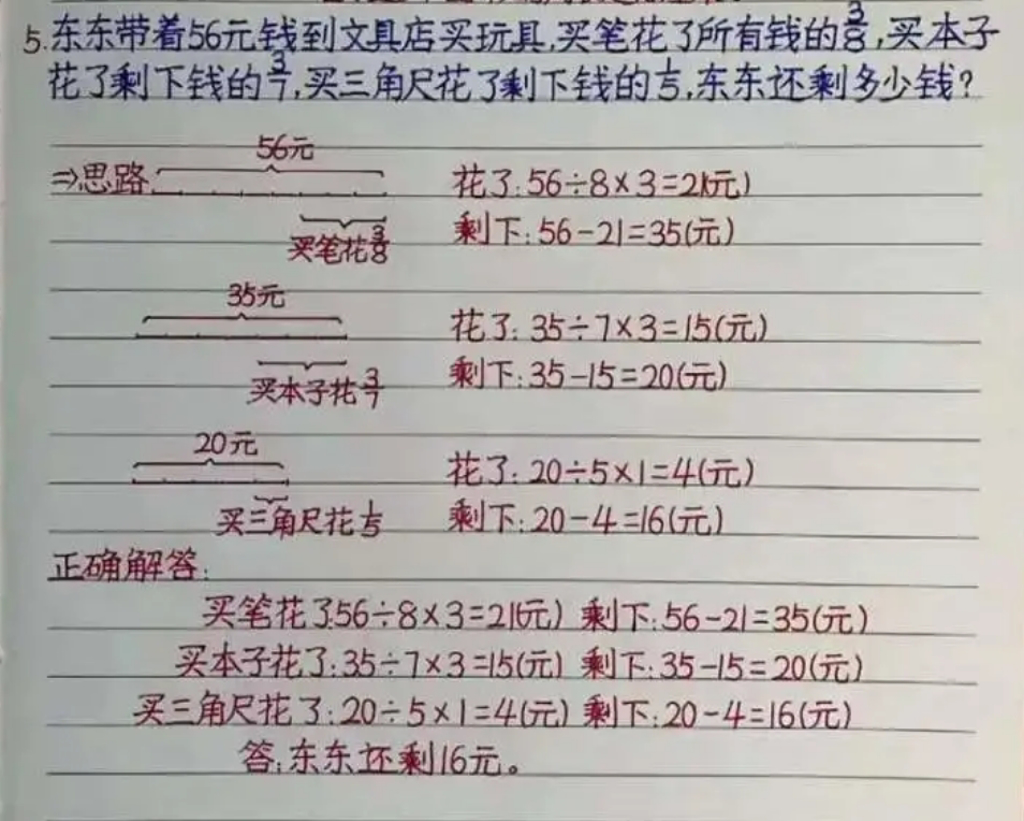 5.东东带着56元钱到文具店买玩具,买笔花了所有钱的3/8,买本子
花了剩下钱的3/7,买三角尺花了剩下钱的1/5,东东还剩多少钱?
56元
⇒思路 花了:56÷8×3=21(元)
买笔花3/8 剩下:56-21=35(元)
35元
花了:35÷7×3=15(元)
买本子花3/7 剩下:35-15=20(元)
20元
花了:20÷5×1=4(元)
买三角尺花1/5 剩下:20-4=16(元)
正确解答:
买笔花了:56÷8×3=21(元) 剩下:56-21=35(元)
买本子花了:35÷7×3=15(元) 剩下:35-15=20(元)
买三角尺花了:20÷5×1=4(元) 剩下:20-4=16(元)
答:东东还剩16元。